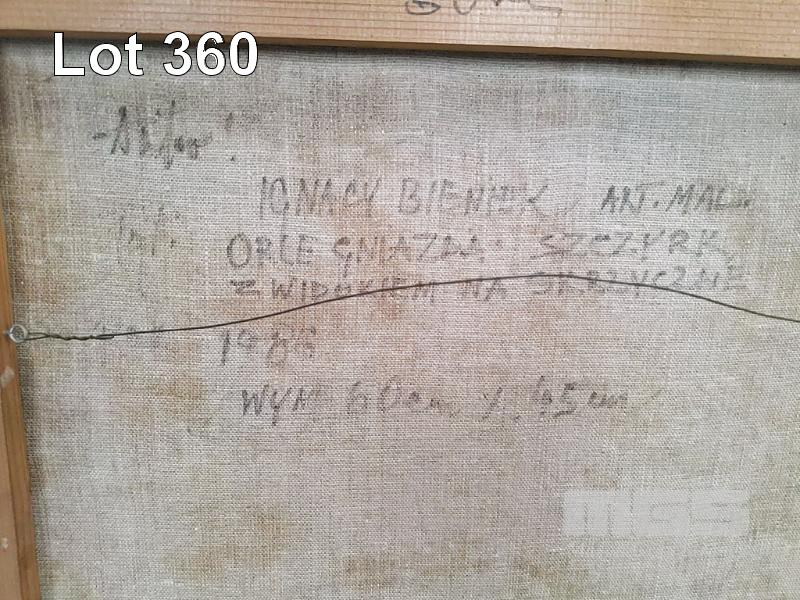 Lot 360
IGNACY BIENIEK, ART. MAL.
ORLE GNIAZDA SZCZYRK
Z WIDOKIEM NA SKRZYCZNE
1986
WYM 60cm X 45cm
MGS